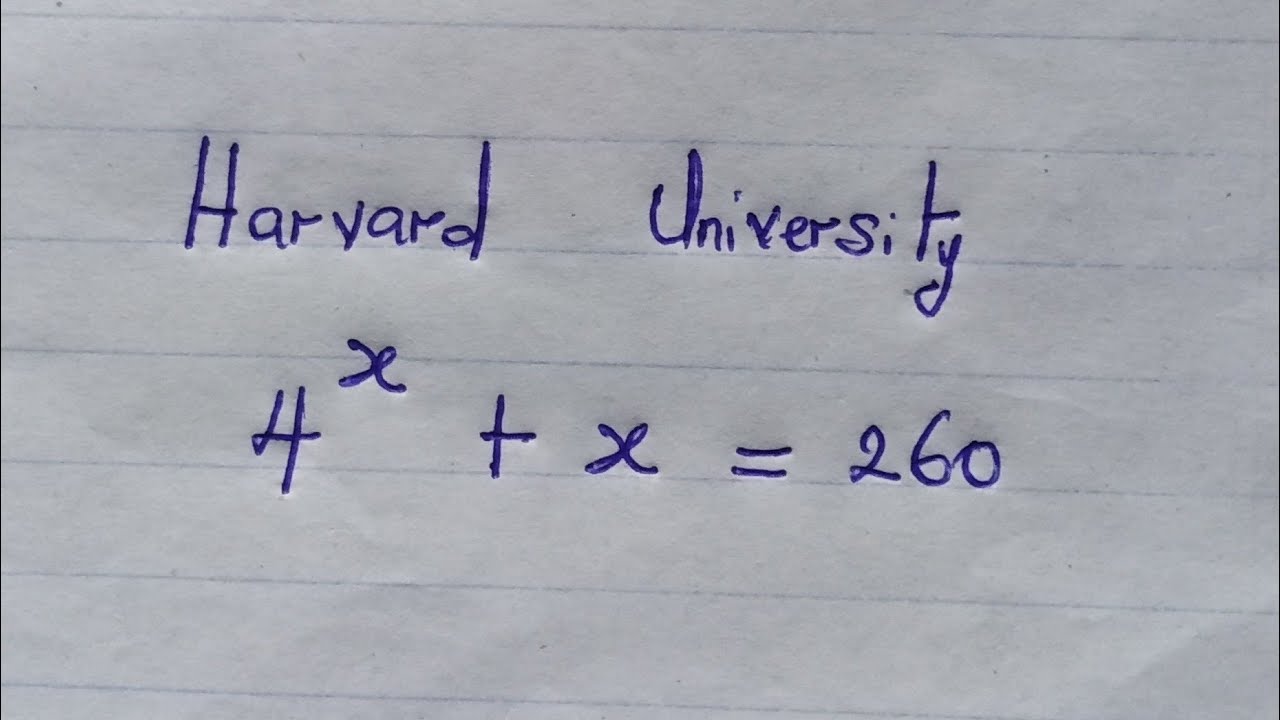 Harvard University
4^x + x = 260